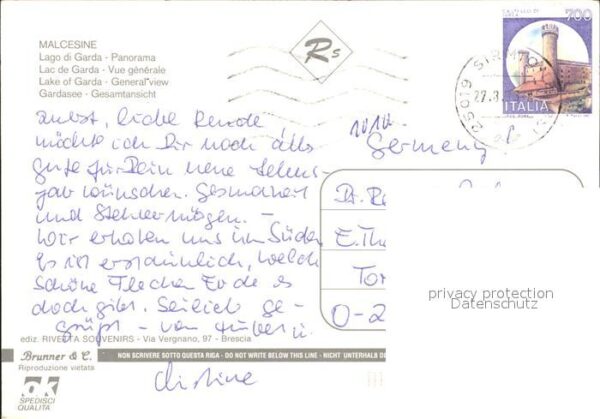 MALCESINE
Lago di Garda - Panorama
Lac de Garda - Vue générale
Lake of Garda - General view
Gardasee - Gesamtansicht
Rs
CASTELLO DI
700
ITALIA
25019 SIRMIO
27.8.
zuerst, liebe Renate
möchte ich Dir noch alles
gute für Dein neue Lebens-
jahr wünschen. Gesundheit
und Stehvermögen. -
Wir erholen uns im Süden
Es ist erstaunlich, welch
schöne Flecken Erde es
doch gibt. Sei lieb ge-
grüßt - von u.
Christine
Germany
Dr. Re
E. Th
Tor
O-2
privacy protection
Datenschutz
ediz. RIVETTA SOUVENIRS - Via Vergnano, 97 - Brescia
Brunner & C.
Riproduzione vietata
NON SCRIVERE SOTTO QUESTA RIGA - DO NOT WRITE BELOW THIS LINE - NICHT UNTERHALB DE
OK
SPEDISCI
QUALITÀ